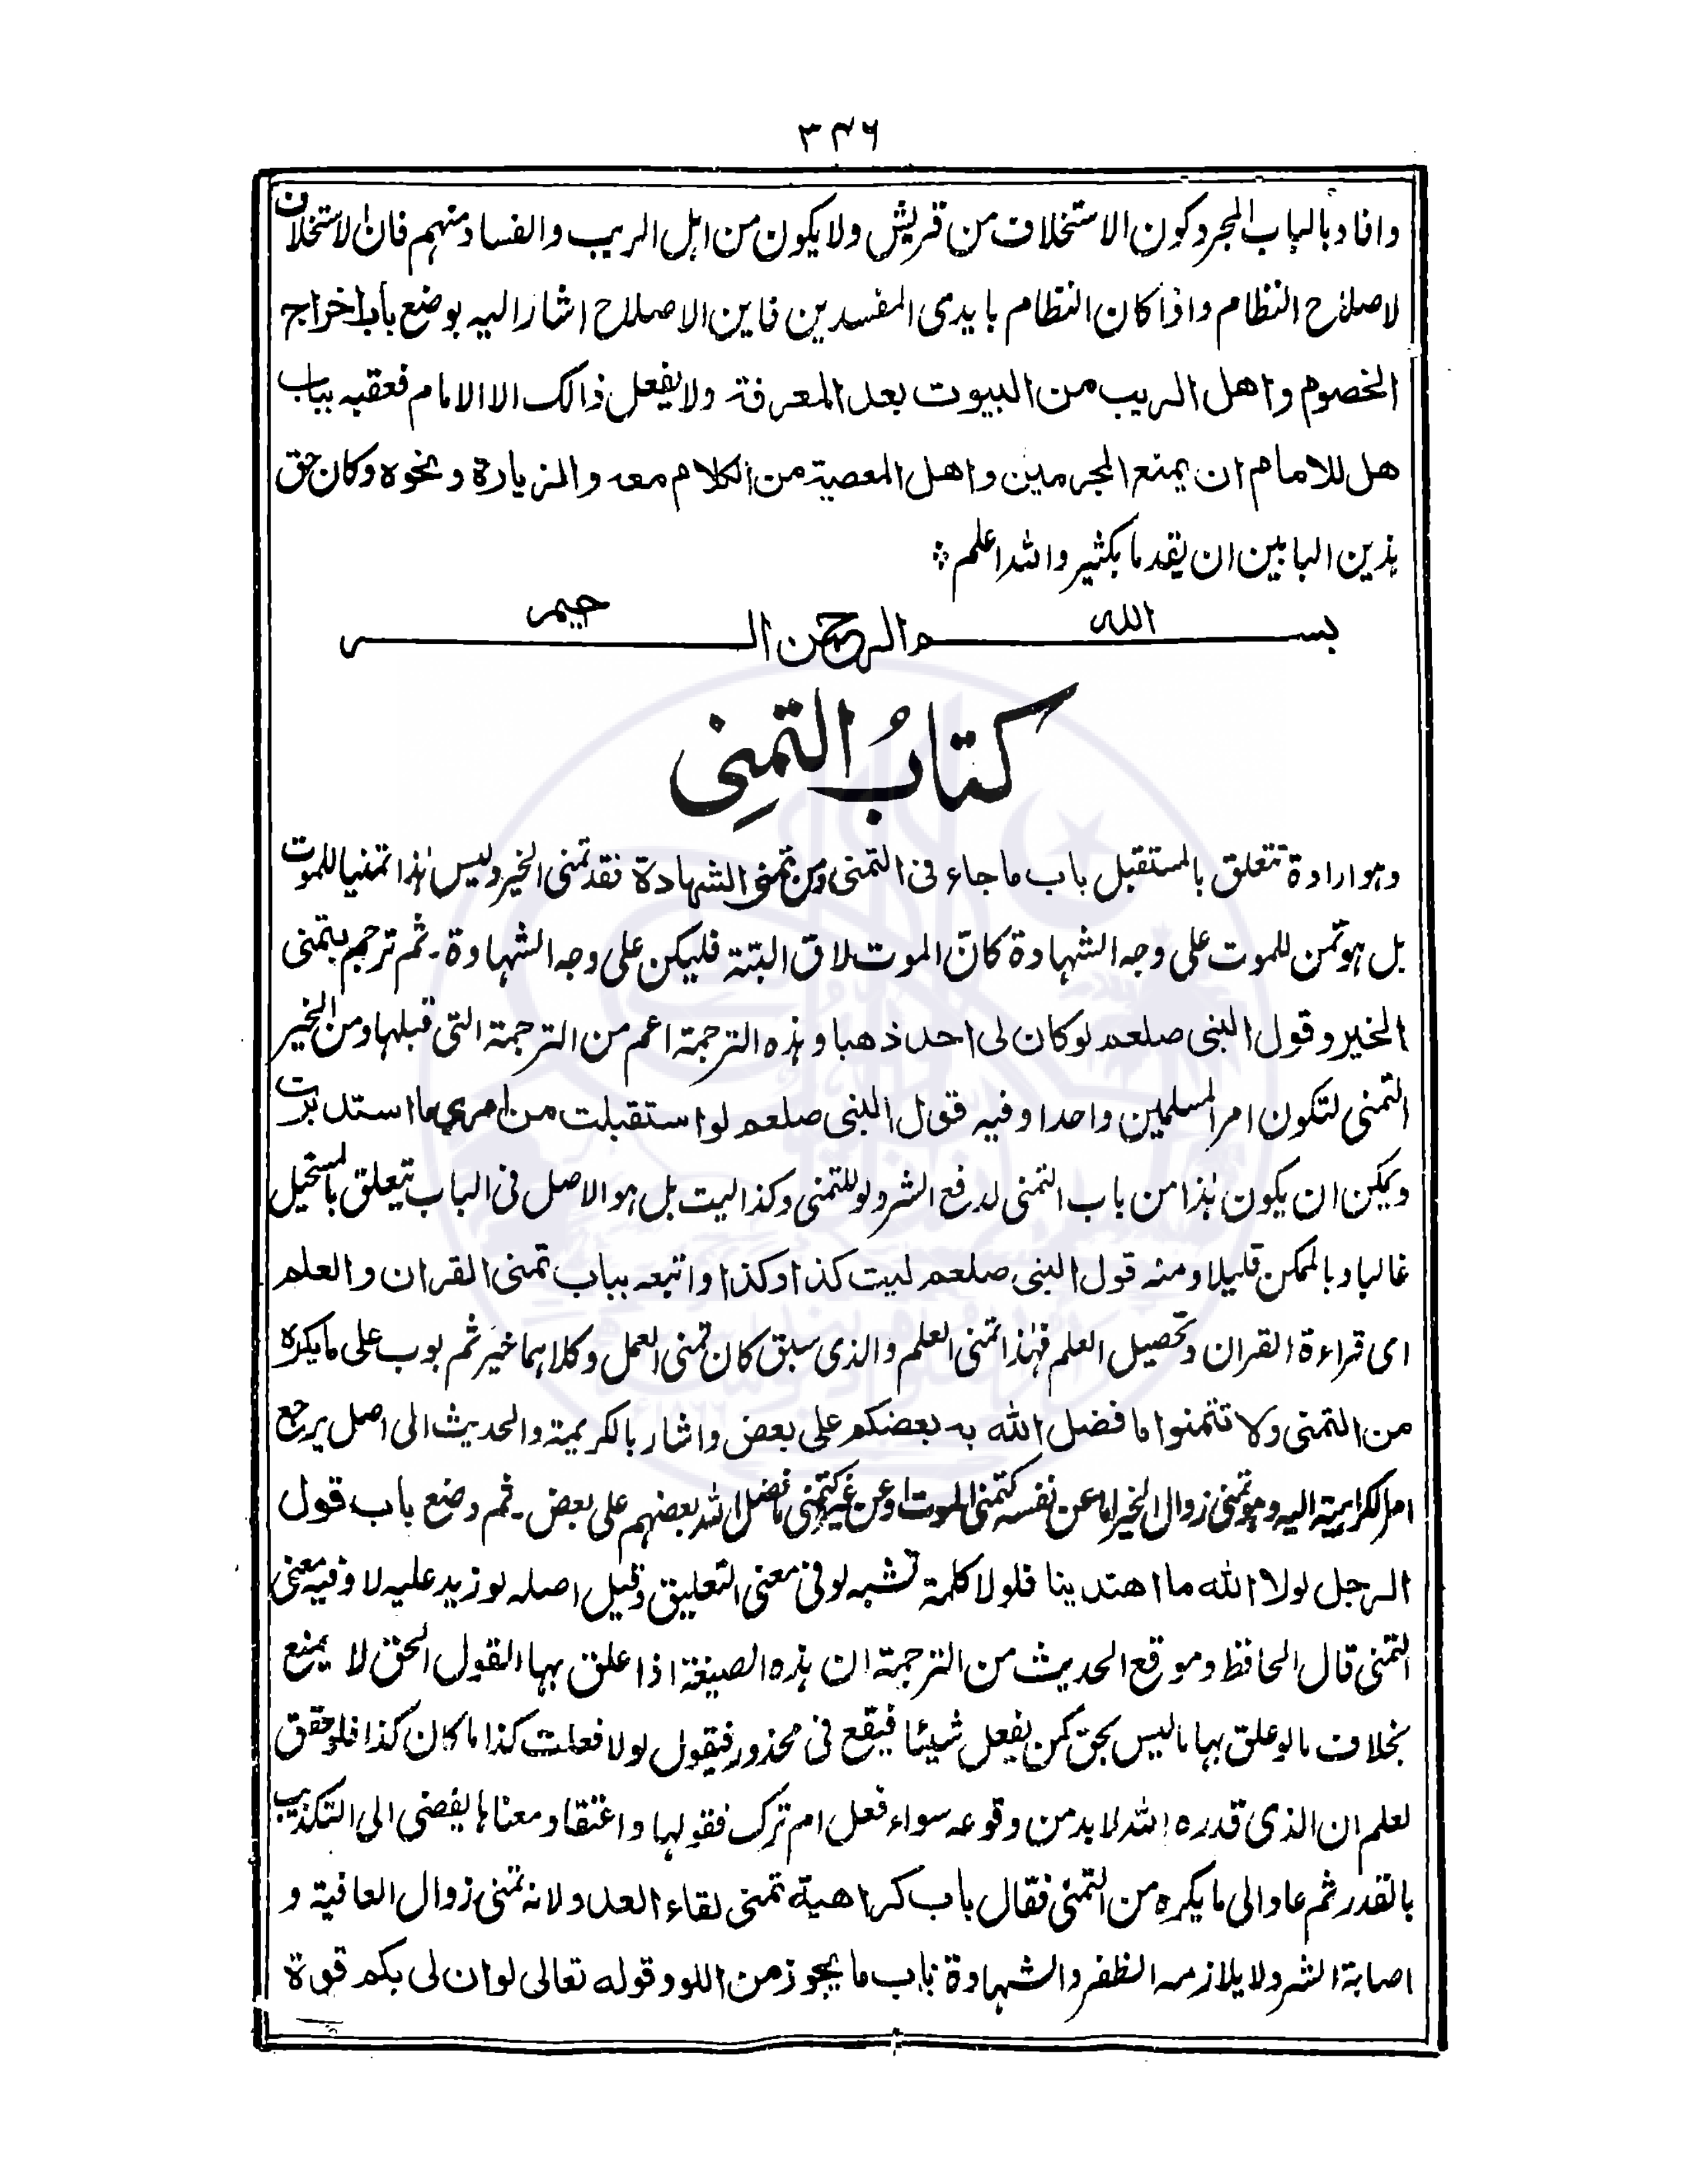 ٣٤٦
وافاد بالباب المجرد كون الاستخلاف من قريش ولا يكون من اهل الريب والفساد منهم فان الاستخلاف
لاصلاح النظام واذا كان النظام بايدى المفسدين فاين الاصلاح اشار اليه بوضع باب اخراج
الخصوم واهل الريب من البيوت بعد المعرفة ولا يفعل ذالك الا الامام فعقبه بباب
هل للامام ان يمنع المجرمين واهل المعصية من الكلام معه والزيارة ونحوه وكان حق
هذين البابين ان يقدما بكثير والله اعلم
بسم الله الرحمن الرحيم
كتابُ التمنِى
وهو ارادة تتعلق بالمستقبل باب ما جاء فى التمنى ومن تمنى الشهادة فقد تمنى الخير وليس هٰذا تمنيا للموت
بل هو تمن للموت على وجه الشهادة كانّ الموت لاق البتة فليكن على وجه الشهادة۔ ثم ترجم بتمنى
الخير وقول النبى صلعم لو كان لى احد ذهبا وهذه الترجمة اعم من الترجمة التى قبلها ومن الخير
التمنى لتكون امر المسلمين واحدا وفيه قول النبى صلعم لو استقبلت من امرى ما استدبرت
ويمكن ان يكون هٰذا من باب التمنى لدفع الشر ولو للتمنى وكذا ليت بل هو الاصل فى الباب تتعلق بالمستحيل
غالبا وبالممكن قليلا ومنه قول النبى صلعم ليت كذا وكذا واتبعه بباب تمنى القران والعلم
اى قراءة القران وتحصيل العلم فهٰذا تمنى العلم والذى سبق كان تمنى العمل وكلاهما خير ثم بوب على ما يكره
من التمنى ولا تتمنوا ما فضل الله به بعضكم على بعض واشار بالكريمة والحديث الى اصل يرجع
امر الكراهية اليه وهو تمنى زوال الخير اما عن نفسه كتمنى الموت او عن غيره كتمنى ما فضل الله بعضهم على بعض۔ ثم وضع باب قول
الرجل لولا الله ما اهتدينا فلولا كلمة تشبه لو فى معنى التعليق وقيل اصله لو زيد عليه لا وفيه معنى
التمنى قال الحافظ وموقع الحديث من الترجمة ان هذه الصيغة اذا علق بها القول الحق لا يمنع
بخلاف ما لو علق بها ما ليس بحق كمن يفعل شيئا فيقع فى محذور فيقول لولا فعلت كذا ما كان كذا فلو حقق
لعلم ان الذى قدره الله لا بد من وقوعه سواء فعل ام ترك فقولها واعتقاد معناها يفضى الى التكذيب
بالقدر ثم عاد الى ما يكره من التمنى فقال باب كراهية تمنى لقاء العدو لانه تمنى زوال العافية و
اصابة الشر ولا يلازمه الظفر والشهادة باب ما يجوز من اللو وقوله تعالى لو ان لى بكم قوة